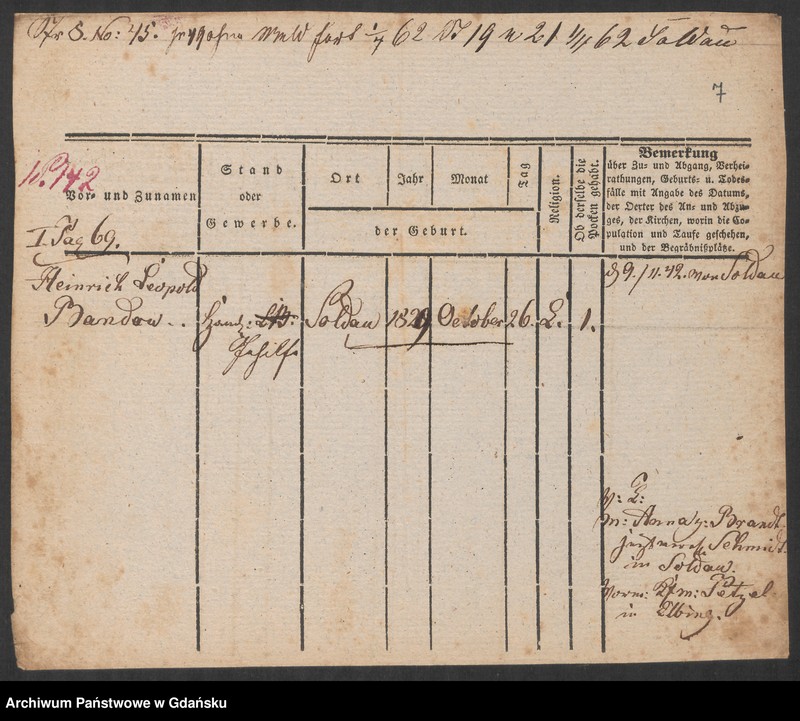 S. No: 45. 62 19 u 21 62 Soldau
7
No. 142
Vor- und Zunamen
I. Tag 69.
Stand
oder
Gewerbe.
Ort Jahr Monat Tag
der Geburt.
Religion.
Ob derselbe die
Pocken gehabt.
Bemerkung
über Zu- und Abgang, Verhei-
rathungen, Geburts- u. Todes-
fälle mit Angabe des Datums,
der Oerter des An- und Abzu-
ges, der Kirchen, worin die Co-
pulation und Taufe geschehen,
und der Begräbnißplätze.
Heinrich Leopold
Bandow
Handl:
Gehilfe
Soldau 1829 October 26. L. 1.
9./11.42. von Soldau
v: L:
m: Anna g: Brandt
Schmidt
in Soldau.
Vorm: Kfm: Tetzel
in Elbing.
Archiwum Państwowe w Gdańsku